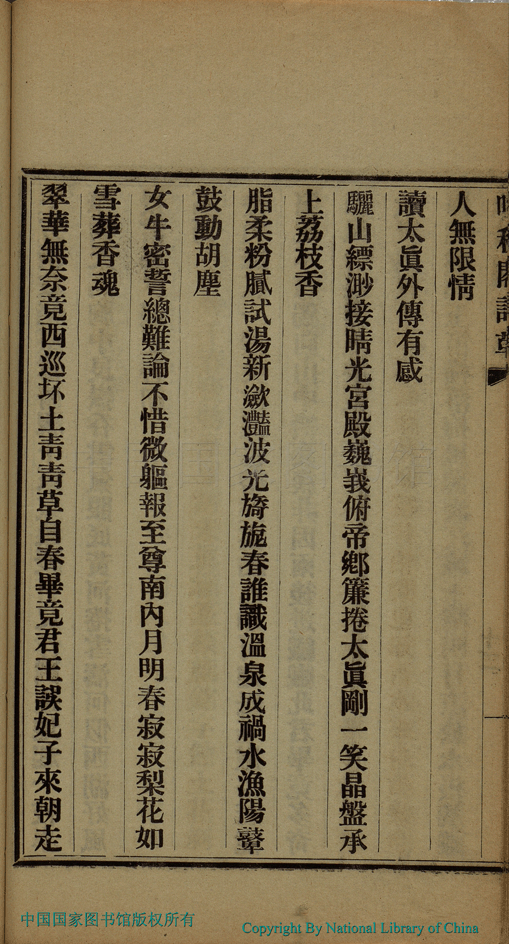 人無限情
讀太眞外傳有感
驪山縹渺接晴光宮殿巍峩俯帝鄉簾捲太眞剛一笑晶盤承
上荔枝香
脂柔粉膩試湯新瀲灩波光旖旎春誰識溫泉成禍水漁陽鼙
鼓動胡塵
女牛密誓總難論不惜微軀報至尊南內月明春寂寂梨花如
雪葬香魂
翠華無奈竟西巡坏土靑靑草自春畢竟君王誤妃子來朝走
中国国家图书馆版权所有
Copyright By National Library of China